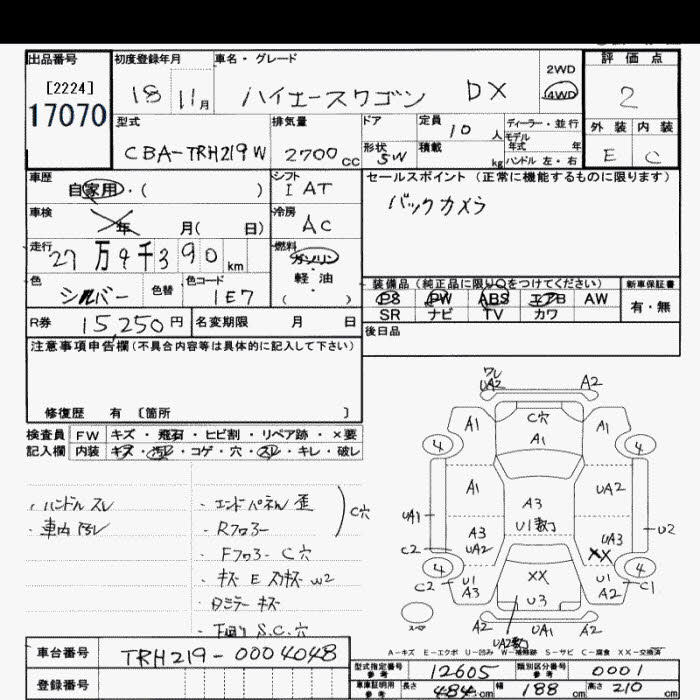 出品番号 初度登録年月 車名・グレード 評価点
[2224] 2WD
17070 18 11月 ハイエースワゴン DX 4WD 2
型式 排気量 ドア 定員 10人 ディーラー・並行 外装 内装
モデル
年式 年
CBA-TRH219W 2700cc 形状 SW 積載 kg ハンドル 左・右 E C
車歴 自家用・( ) シフト IAT セールスポイント(正常に機能するものに限ります)
車検 年 月( 日) 冷房 AC バックカメラ
走行 27万9千390km 燃料 ガソリン・軽油( )
色 シルバー 色替 色コード 1E7 装備品(純正品に限り○をつけてください) 新車保証書
PS PW ABS エアB AW 有・無
R券 15,250円 名変期限 月 日 SR ナビ TV カワ
注意事項申告欄(不具合内容等は具体的に記入して下さい) 後日品
修復歴 有 〔箇所 〕
検査員 FW キズ・飛石・ヒビ割・リペア跡・×要
記入欄 内装 キズ・汚レ・コゲ・穴・スレ・キレ・破レ
・ハンドル スレ
・車内 汚レ
・エンドパネル 歪
・Rフロアー
・Fフロアー C穴
C穴
・キズ E スリキズ W2
・ミラー キズ
・下回り S.C.穴
ワレ
UA2 A2
A1 C穴 A1
A1
4 4
A1 A3 UA2
UA1 U1数ケ U2
A3 UA2 UA3
C2 XX
4 4
C2 U1 A3 XX U1 A2 C1
U3
スペア A2 UA1 A2
UA2数ケ
A-キズ E-エクボ U-凹み W-補修跡 S-サビ C-腐食 XX-交換済
車台番号 TRH219-0004048
型式指定番号 参考 12605 類別区分番号 参考 0001
登録番号 車庫証明用 参考 長さ 484cm 幅 188cm 高さ 210cm